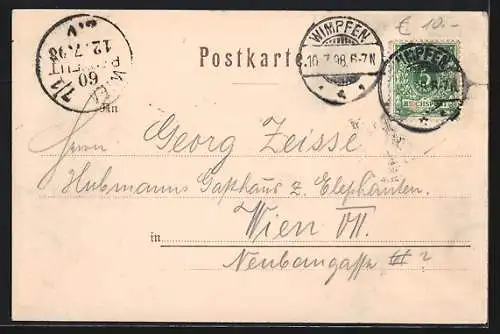 € 10.-
WIMPFEN
10.7.98.6-7N
Postkarte
WIMPFEN
5
REICHSPOST
WIEN
7/1
60
12.7.98
An
Herrn Georg Zeisse
Hubmanns Gasthaus z. Elephanten.
Wien VII.
in
Neubaugasse 2